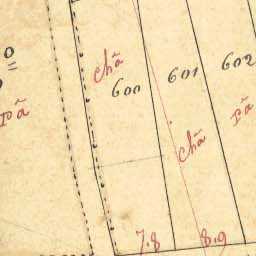 602
601
600
chã
pã
chã
pã
7.8
8.9